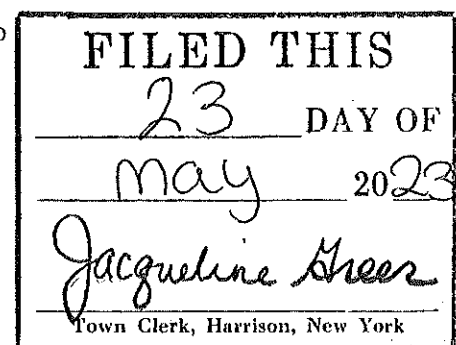 FILED THIS
23 DAY OF
May 2023
Jacqueline Greer
Town Clerk, Harrison, New York